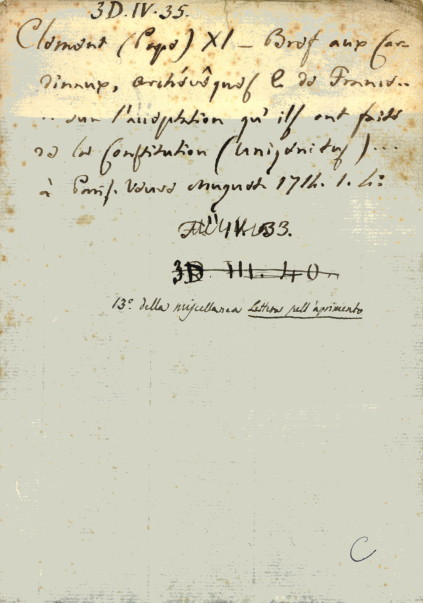 3D.IV.35.
Clement (Pape) XI – Bref aux Car-
dinaux, archévêques & de France..
.. sur l'acceptation qu'ils ont faite
de la Constitution (Unigenitus)...
à Paris. Veuve Muguet 1714. 1. 4:
IV. 33.
3D. III. 40.
13° della miscellanea Lettera sull'aprimento
C